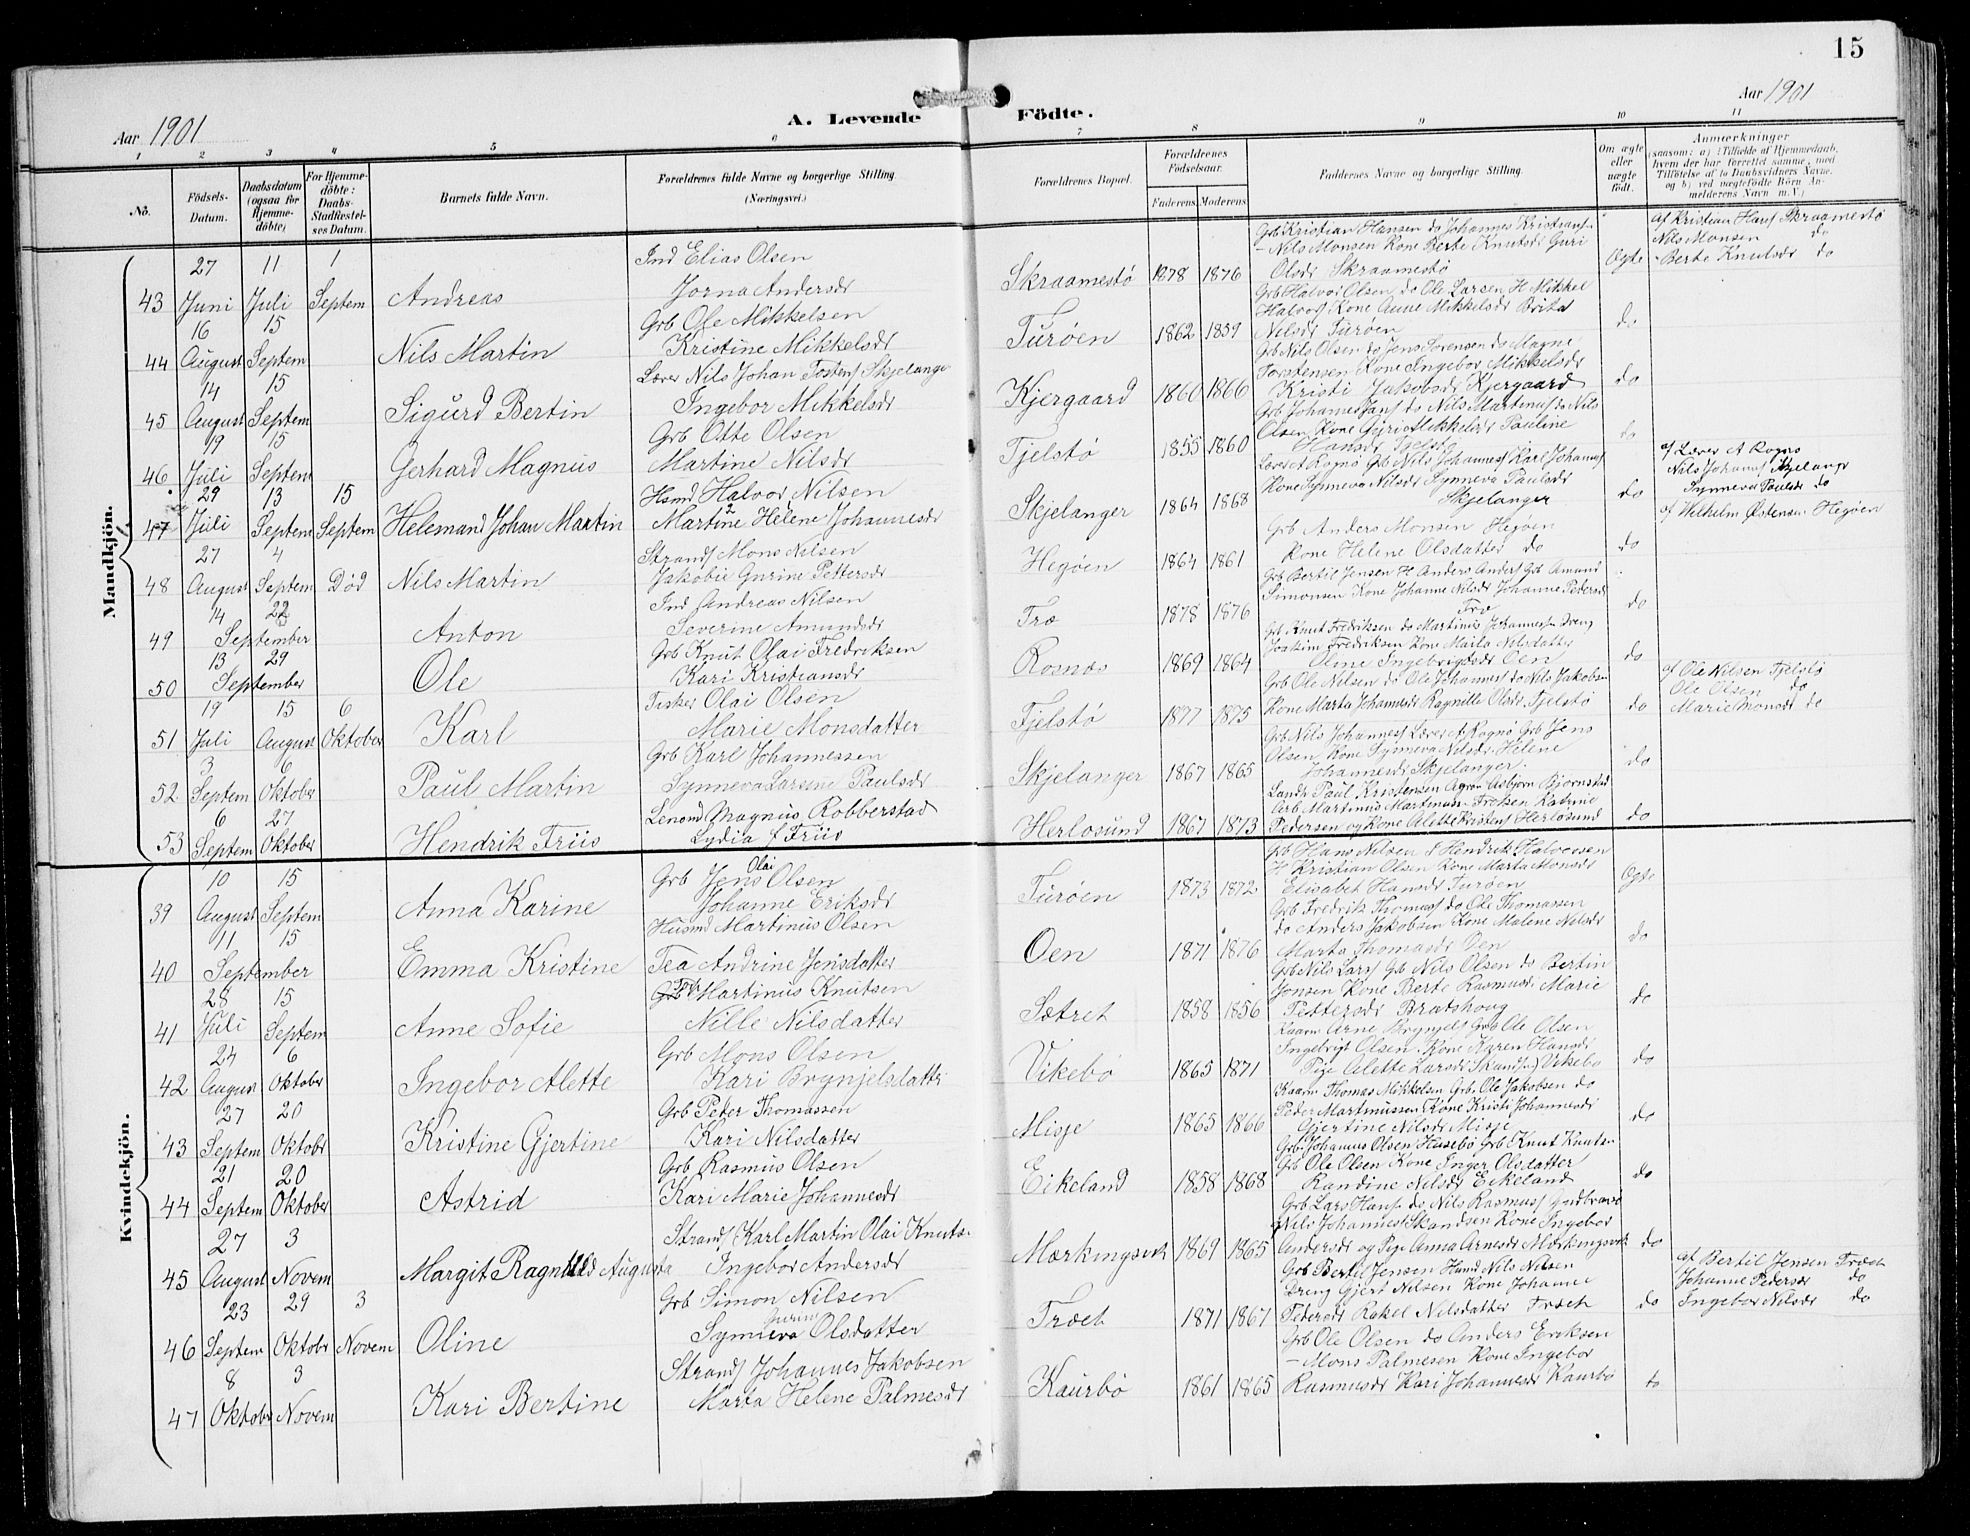 15
Aar 1901
A. Levende Födte.
Aar 1901
1 2 3 4 5 6 7 8 9 10 11
No.
Födsels-Datum.
Daabsdatum (ogsaa for Hjemme-döbte)
For Hjemme-döbte: Daabs-Stadfæstel-ses Datum.
Barnets fulde Navn.
Forældrenes fulde Navne og borgerlige Stilling (Næringsvei.)
Forældrenes Bopæl.
Forældrenes Födselsaar.
Faderens Moderens
Faddernes Navne og borgerlige Stilling.
Om ægte eller uægte födt.
Anmærkninger
(saasom: a) i Tilfælde af Hjemmedaab, hvem der har forrettet samme, med Tilföielse af to Daabsvidners Navne, og b) ved uægtefödte Börn An-melderens Navn m. V.)
Mandkjön.
43 27 Juni 11 Juli 1 Septem Andreas
Ind Elias Olsen
Jorna Andersdr
Skraamestö 1878 1876
Grb Kristian Hansen do Johannes Kristians
- Nils Monsen Kone Berte Knutsdr Guri
Olsdr Skraamestö
Ægte
af Kristian Hans Skraamestö
Nils Monsen do
- Berte Knutsdr do
44 16 August 15 Septem Nils Martin
Grb Ole Mikkelsen
Kristine Mikkelsdr
Turöen 1862 1859
Grb Halvor Olsen do Ole Larsen H Mikkel
Halvors Kone Anne Mikkelsdr Brita
Nilsdr Turöen
do
45 14 August 15 Septem Sigurd Bertin
Lærer Nils Johan Skjelange
Ingebor Mikkelsdr
Kjergaard 1860 1866
Grb Nils Olsen do Jens Sorensen do Magne
Torstensen Kone Ingebor Mikkelsdr
Kristi Jakobsdr Kjergaard
do
46 19 Juli 15 Septem Gerhard Magnus
Grb Otte Olsen
Martine Nilsdr
Tjelstö 1855 1860
Grb Johannes Jans do Nils Martinus do Nils
Olsen Kone Guri Mikkelsdr Pauline
Hansdr Tjelstö
do
47 29 Juli 13 Septem 15 Septem Helemand Johan Martin
Hsmd Halvor Nilsen
Martine Helene Johannesdr
Skjelanger 1864 1868
Lærer A Rognö Grb Nils Johannes Karl Johannes
Kone Synneva Nilsdr Synneva Paulsdr
Skjelanger
do
af Lærer A Rognö
Nils Johans Skjelange
Synneva Paulsdr do
48 27 August 4 Septem Död Nils Martin
Strands Mons Nilsen
Jakobie Gurine Pettersdr
Hegöen 1864 1861
Grb Anders Monsen Hegöen
Kone Helene Olsdatter do
do
af Welhelm Østensen Hegöen
49 14 September 22 Anton
Ind Andreas Nilsen
Severine Amundsdr
Træ 1878 1876
Grb Bertil Jensen H Anders Anders Grb Amund
Simonsen Kone Johanne Nilsdr Johanne Pedersdr
Træ
do
50 13 September 29 Ole
Grb Knut Olai Fredriksen
Kari Kristiansdr
Rosnæs 1869 1864
Grb Knut Fredriksen do Martinus Johannesen Dreng
Joakim Fredriksen Kone Marta Nilsdatter
Oline Ingebrigtsdr Oen
do
51 19 Juli 15 August 6 Oktober Karl
Fisker Olai Olsen
Marie Monsdatter
Tjelstö 1877 1875
Grb Ole Nilsen do Ole Johannes do Nils Jakobsen
Kone Marta Johannesdr Ragnille Olsdr Tjelstö
do
af Ole Nilsen Tjelstö
Ole Olsen do
Marie Monsdr do
52 3 Septem 6 Oktober Paul Martin
Grb Karl Johannessen
Synneva Larsine Paulsdr
Skjelanger 1867 1865
Grb Nils Johannes Lærer A Rognö Grb Jens
Olsen Kone Synneva Nilsdr Helene
Johannesdr Skjelanger.
do
53 6 Septem 27 Oktober Hendrik Friis
Lensmd Magnus Robberstad
Lydia f Friis
Herlosund 1867 1873
Landh Paul Kristensen Agron Asbjorn Bjornstad
Arb. Martinus Martinus Froken Katrine
Pedersen og Kone Alette Kristens Herlosund
do
Kvindekjön.
39 10 August 15 Septem Anna Karine
Grb Jens Olai Olsen
Johanne Eriksdr
Turöen 1873 1872
Grb Hans Nilsen S Hendrik Halvorsen
H Kristian Olsen Kone Marta Monsdr
Elisabet Hansdr Turöen
Ægte
40 11 September 15 Emma Kristine
Husmd Martinus Olsen
Tea Andrine Jensdatter
Oen 1871 1876
Grb Fredrik Thomas do Ole Thomassen
do Anders Jakobsen Kone Malene Nilsdr
Marta Thomasdr Oen
do
41 28 Juli 15 Septem Anne Sofie
Martinus Knutsen
Nille Nilsdatter
Sætret 1858 1856
Grb Nils Lars Grb Nils Olsen do Bertin
Jonsen Kone Berte Rasmusdr Marie
Pettersdr Bratshoug
do
42 24 August 6 Oktober Ingebor Alette
Grb Mons Olsen
Kari Brynjelsdatte
Vikebö 1865 1871
Kaarm Arne Brynjels Grb Ole Olsen
Ingebrigt Olsen. Kone Karen Hansdr
Pige Alette Larsdr Vikebö
do
43 27 Septem 20 Oktobr Kristine Gjertine
Grb Peter Thomassen
Kari Nilsdatter
Misje 1865 1866
Kaarm Thomas Mikkelsen Grb Ole Jakobsen do
Peder Martinussen Kone Kristi Johannesdr
Gjertine Nilsdr Misje
do
44 21 Septem 20 Oktober Astrid
Grb Rasmus Olsen
Kari Marie Johannesdr
Eikeland 1858 1868
Grb Johannes Olsen Husebö Grb Knut Knuts
Grb Ole Olsen Kone Inger Olsdatter
Randine Nilsdr Eikeland
do
45 27 August 3 Novem Margit Ragnhild Augusta
Strands Karl Martin Olai Knuts
Ingebor Andersdr
Mærkingsvik 1869 1865
Grb Lars Hans do Nils Rasmus
Nils Johannes Skandsen Kone Ingebor
Andersdr og Pige Anna Arnesdr Mærkingsvik
do
46 23 Septem 29 Oktobr 3 Novem Oline
Grb Simon Nilsen
Synneva Gurine Olsdatter
Træet 1871 1867
Grb Bertil Jensen Husmd Nils Nilsen
Dreng Gjert Nilsen Kone Johanne
Pedersdr Rakel Nilsdatter Træet
do
af Bertil Jensen Træet
Johanne Pedersdr do
Ingebor Nilsdr do
47 8 Oktober 3 Novem Kari Bertine
Strands Johannes Jakobsen
Marta Helene Palmesdr
Kaurbö 1861 1865
Grb Ole Olsen do Anders Eriksen
- Mons Palmesen Kone Ingebor
Rasmusdr Kari Johannesdr Kaurbö
do